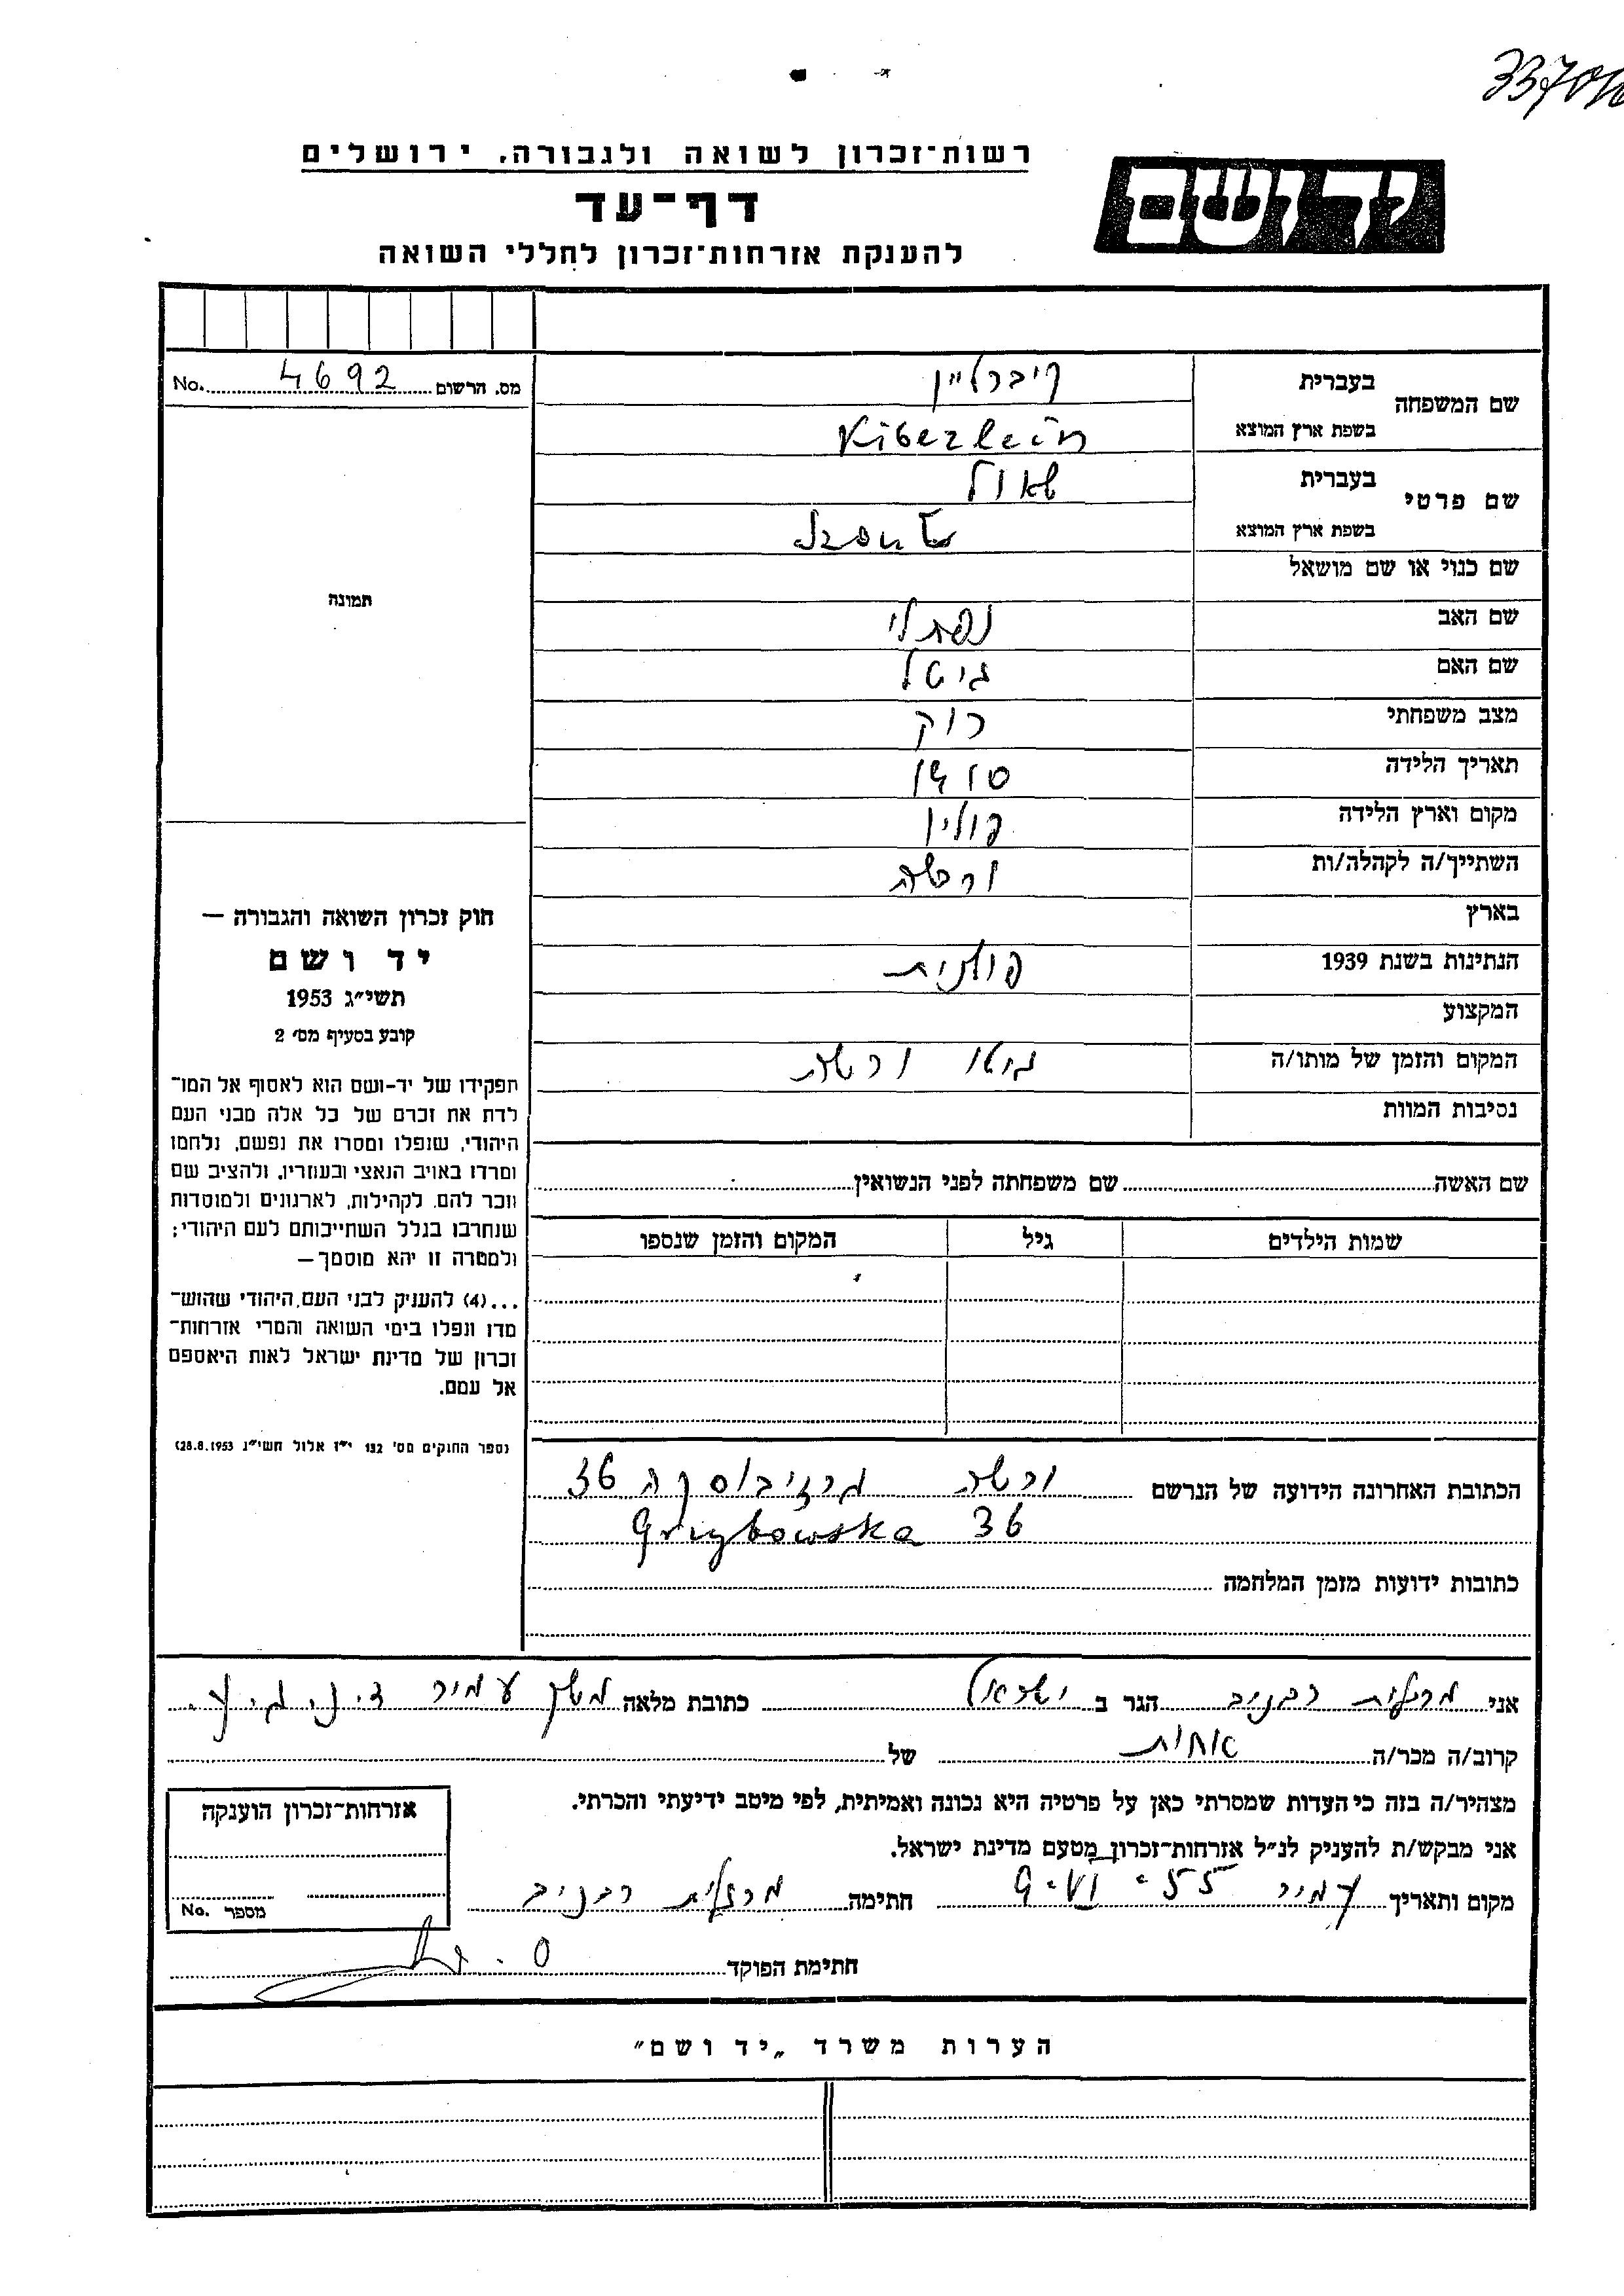 רשות־זכרון לשואה ולגבורה, ירושלים
יד ושם
דף־עד
להענקת אזרחות־זכרון לחללי השואה
מס. הרשום 4692 No.
שם המשפחה
בעברית קיברליין
בשפת ארץ המוצא Kiberlein
שם פרטי
בעברית שאול
בשפת ארץ המוצא
שם כנוי או שם מושאל
שם האב נפתלי
שם האם גיטל
מצב משפחתי רוק
תאריך הלידה 1910
מקום וארץ הלידה פולין
השתייך/ה לקהלה/ות ורשה
בארץ
הנתינות בשנת 1939 פולנית
המקצוע
המקום והזמן של מותו/ה גיטו ורשה
נסיבות המוות
תמונה
חוק זכרון השואה והגבורה —
יד ושם
תשי״ג 1953
קובע בסעיף מס׳ 2
תפקידו של יד-ושם הוא לאסוף אל המו־
לדת את זכרם של כל אלה מבני העם
היהודי, שנפלו ומסרו את נפשם, נלחמו
ומרדו באויב הנאצי ובעוזריו, ולהציב שם
וזכר להם, לקהילות, לארגונים ולמוסדות
שנחרבו בגלל השתייכותם לעם היהודי;
ולמטרה זו יהא מוסמך—
...(4) להעניק לבני העם היהודי שהוש־
מדו ונפלו בימי השואה והמרי אזרחות־
זכרון של מדינת ישראל לאות היאספם
אל עמם.
(ספר החוקים מס׳ 132 י״ז אלול תשי״ג 28.8.1953)
שם האשה שם משפחתה לפני הנשואין
שמות הילדים גיל המקום והזמן שנספו
הכתובת האחרונה הידועה של הנרשם ורשה גרזיבוסקה 36
Grzybowska 36
כתובות ידועות מזמן המלחמה
אני מרגלית רבניב הגר ב ישראל כתובת מלאה משק עמיר ד.נ. ג.ע.
קרוב/ה מכר/ה אחות של
מצהיר/ה בזה כי העדות שמסרתי כאן על פרטיה היא נכונה ואמיתית, לפי מיטב ידיעתי והכרתי.
אני מבקש/ת להעניק לנ״ל אזרחות־זכרון מטעם מדינת ישראל.
מקום ותאריך עמיר 9-VI-55 חתימה מרגלית רבניב
אזרחות־זכרון הוענקה
מספר No.
חתימת הפוקד
הערות משרד „יד ושם״